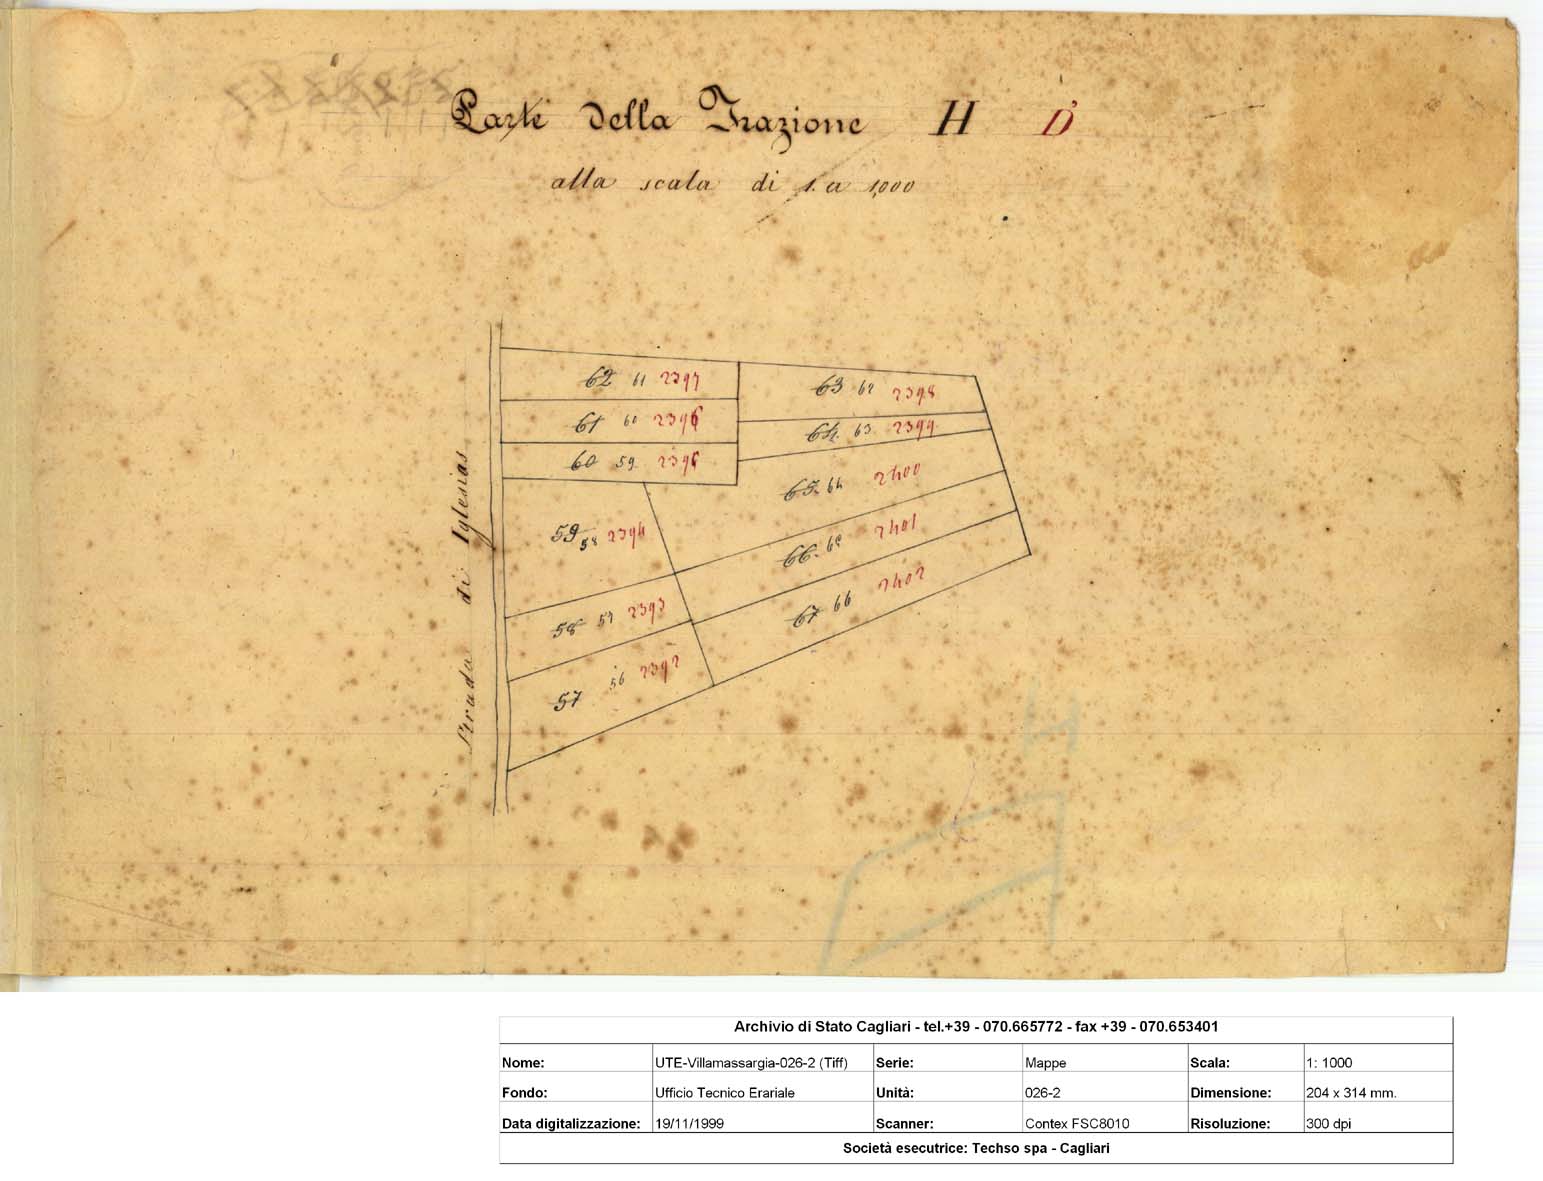 Parte della Frazione H D'
alla scala di 1 a 1,000
Strada di Iglesias
62 61 2397
63 62 2398
61 60 2396
64 63 2399
60 59 2395
65 64 2400
59 58 2394
66 65 2401
58 57 2393
67 66 2402
57 56 2392
Archivio di Stato Cagliari - tel.+39 - 070.665772 - fax +39 - 070.653401
Nome: UTE-Villamassargia-026-2 (Tiff) Serie: Mappe Scala: 1: 1000
Fondo: Ufficio Tecnico Erariale Unità: 026-2 Dimensione: 204 x 314 mm.
Data digitalizzazione: 19/11/1999 Scanner: Contex FSC8010 Risoluzione: 300 dpi
Società esecutrice: Techso spa - Cagliari